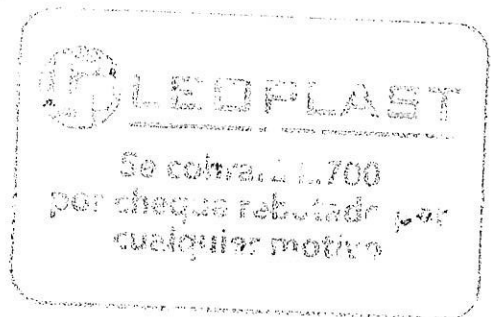 LEOPLAST
Se cobrará L.700
por cheque rebotado por
cualquier motivo